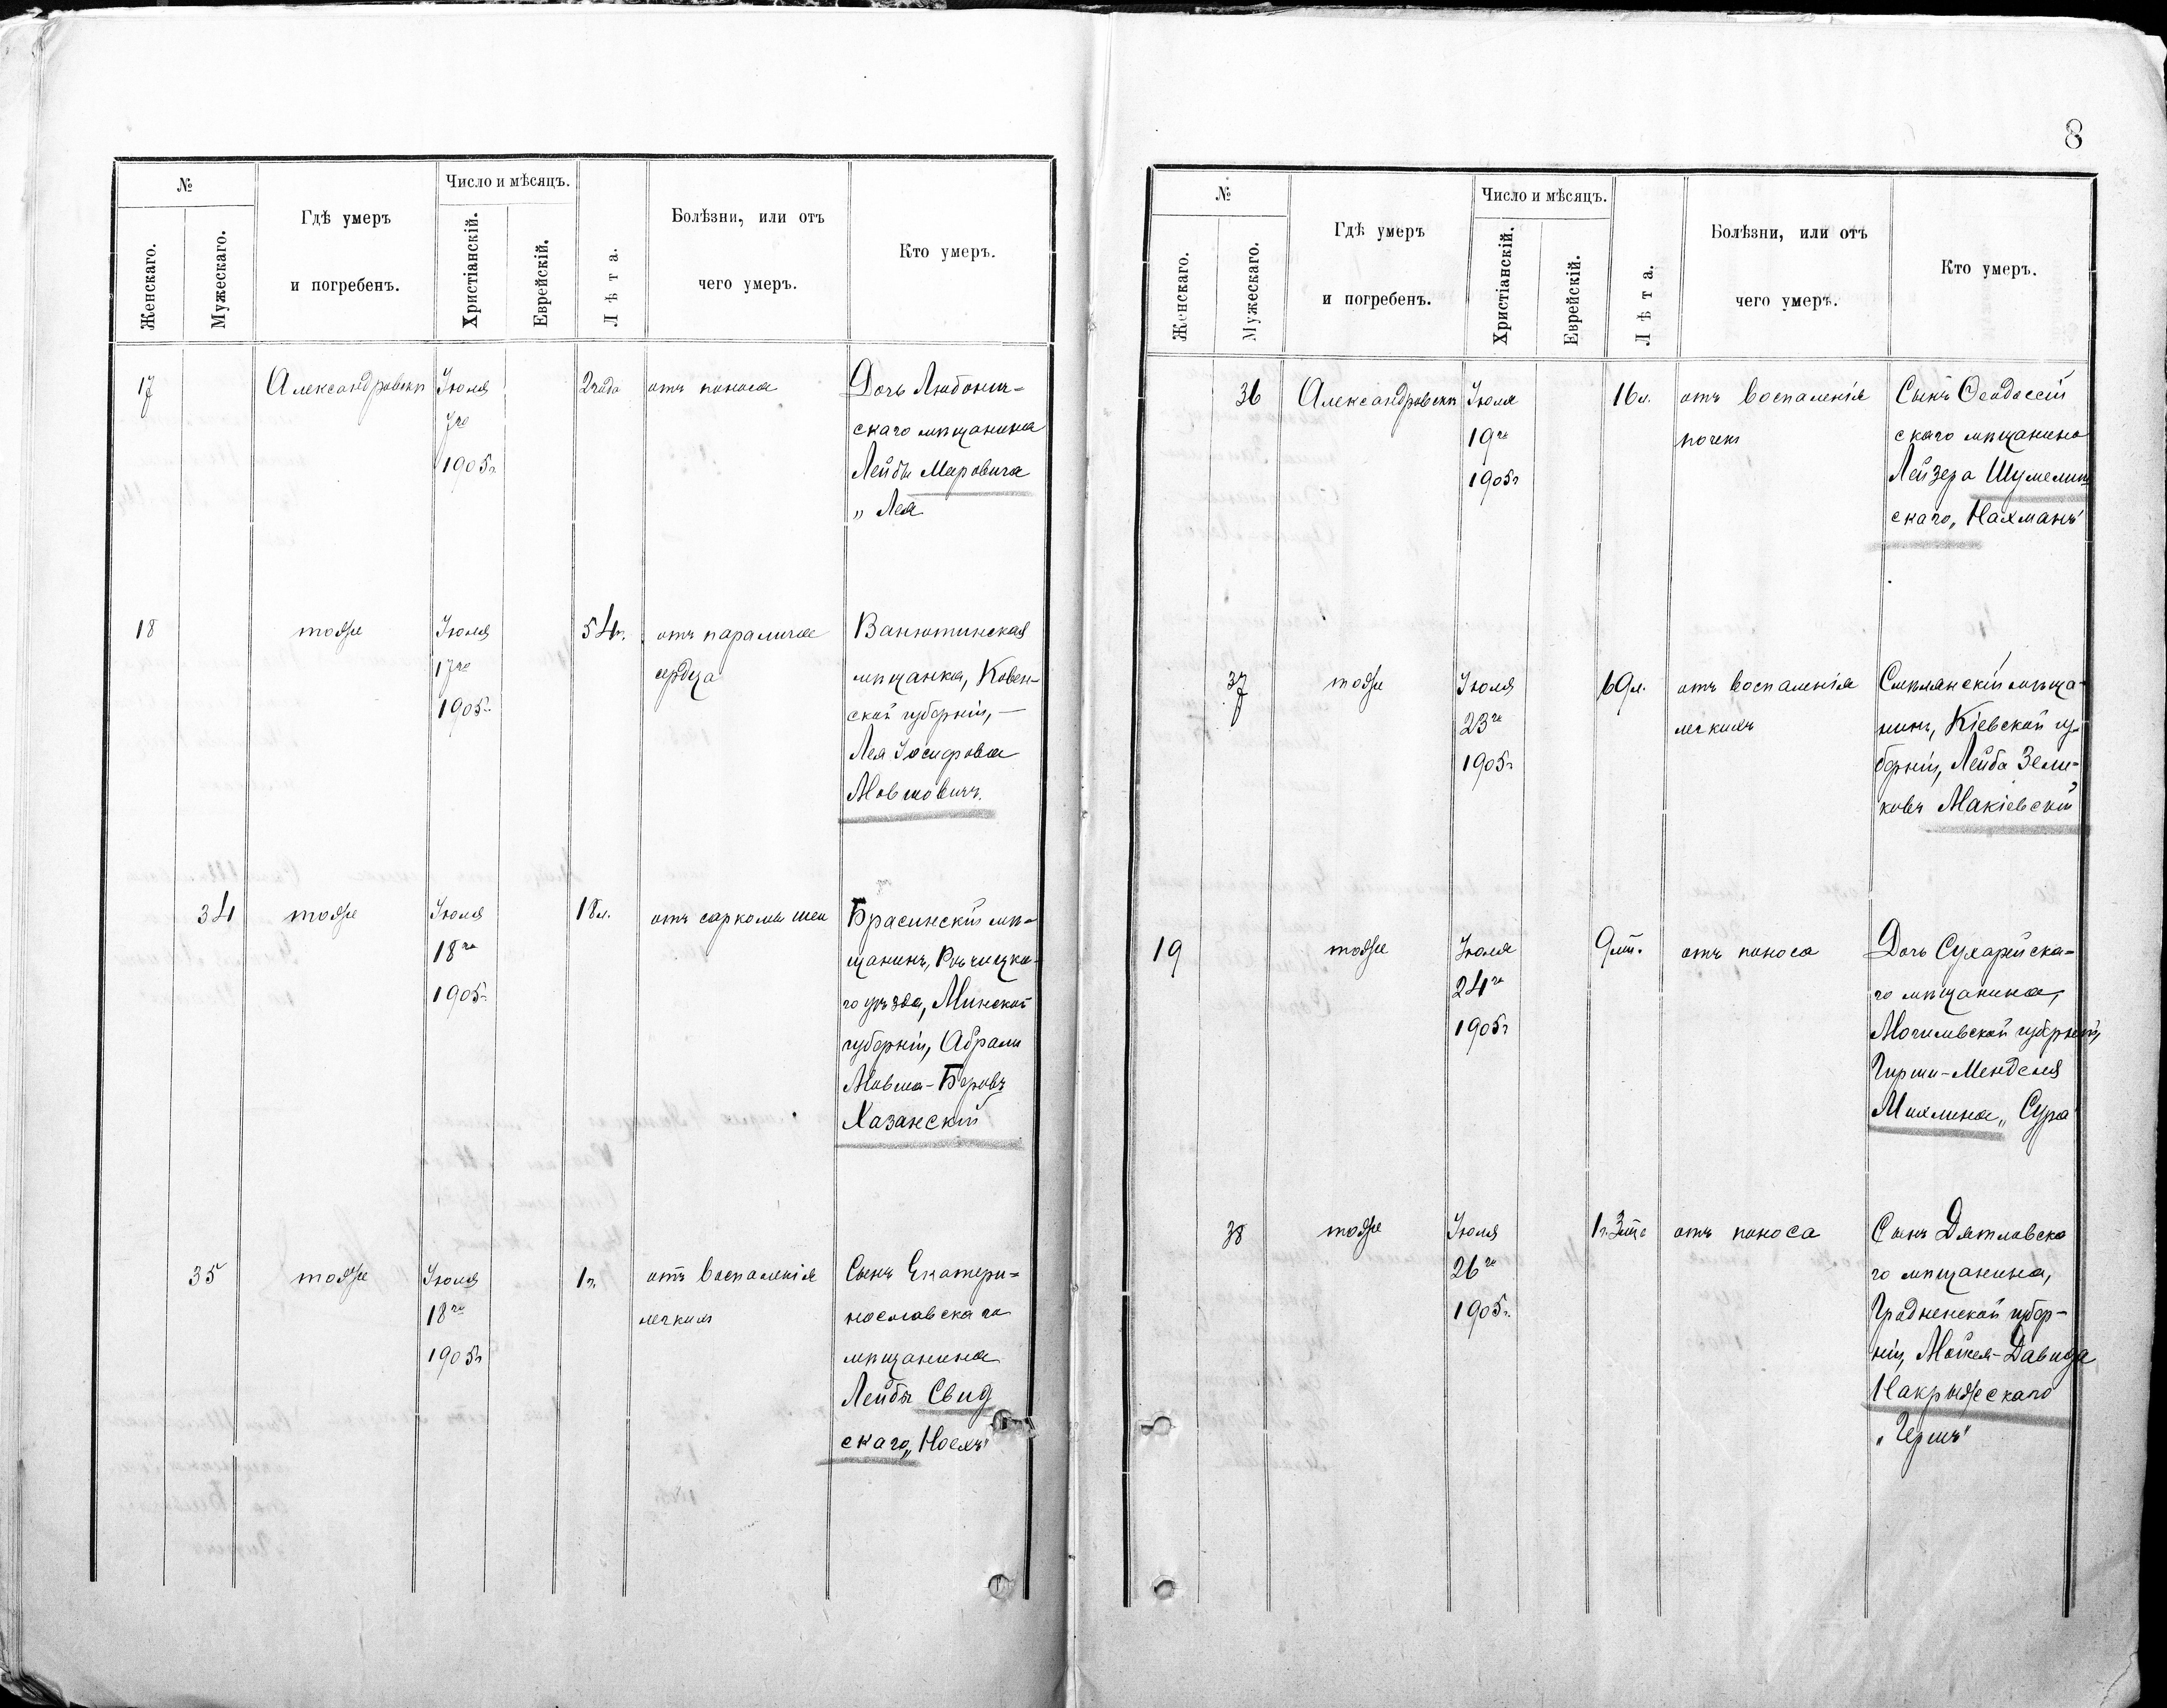 8
№
Женскаго.
Мужескаго.
Гдѣ умеръ
и погребенъ.
Число и мѣсяцъ.
Христіанскій.
Еврейскій.
Лѣта.
Болѣзни, или отъ
чего умеръ.
Кто умеръ.
17
Александровскъ
Іюля
7го
1905г.
2 года
отъ поноса
Дочь
скаго мѣщанина
Лейбы Меровича
„ Лея
18
тоже
Іюля
17го
1905г.
54г.
отъ паралича
сердца
Ванютинская
мѣщанка, Ковен-
ской губерніи, —
Лея Іосифова
Мовшовичъ.
34
тоже
Іюля
18го
1905г.
18л.
отъ саркомы шеи
Брагинскій мѣ-
щанинъ, Рѣчицка-
го уѣзда, Минской
губерніи, Абрамъ
Мовша-Беровъ
Хазанскій
35
тоже
Іюля
18го
1905г.
1г.
отъ воспаленія
легкихъ
Сынъ Екатери-
нославскаго
мѣщанина
Лейбы Свид
скаго „Ноехъ"
№
Женскаго.
Мужескаго.
Гдѣ умеръ
и погребенъ.
Число и мѣсяцъ.
Христіанскій.
Еврейскій.
Лѣта.
Болѣзни, или отъ
чего умеръ.
Кто умеръ.
36
Александровскъ
Іюля
19го
1905г.
16л.
отъ воспаленія
почекъ
Сынъ Ѳеодоссій
скаго мѣщанина
Лейзера Шумелин
скаго, „Нахманъ"
37
тоже
Іюля
23го
1905г.
69л.
отъ воспаленія
легкихъ
Смѣлянскій мѣща-
нинъ, Кіевской гу-
берніи, Лейба Зели-
ковъ Макіевскій
19
тоже
Іюля
24го
1905г.
9 мѣс.
отъ поноса
Дочь Сухарейска-
го мѣщанина,
Могилевской губерніи,
Гирши-Менделя
Михлина „Сура"
38
тоже
Іюля
26го
1905г.
1г. 3 мѣс
отъ поноса
Сынъ Дятловска
го мѣщанина,
Гродненской губер-
ніи, Мовшея-Давида
Накрыжскаго
„Гершъ"